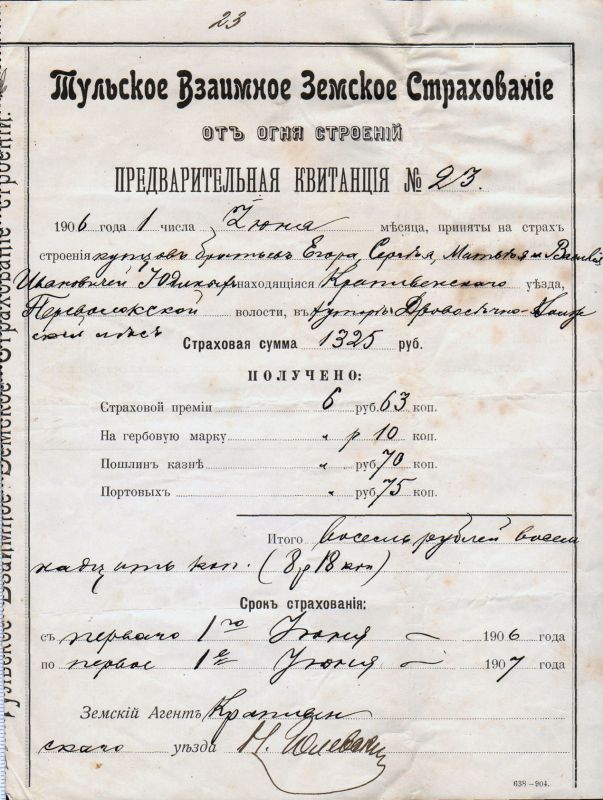 23
Тульское Взаимное Земское Страхованіе
отъ огня строеній
Предварительная квитанція № 23.
1906 года 1 числа Іюня мѣсяца, приняты на страх
строенія купцов братьев Егора, Сергѣя, Матвѣя и Василія
Ивановичей Юдиных находящіяся Крапивенскаго уѣзда,
волости, въ хуторѣ
Страховая сумма 1325 руб.
Получено:
Страховой преміи 6 руб. 63 коп.
На гербовую марку „ р 10 коп.
Пошлинъ казнѣ „ руб. 70 коп.
Портовыхъ „ руб. 75 коп.
Итого восемь рублей восем
надцать коп. (8 р 18 коп)
Срокъ страхованія:
съ первого 1го Іюня — 1906 года
по первое 1е Іюня — 1907 года
Земскій Агентъ Крапивен
скаго уѣзда Н.
638—904.
Тульское Взаимное Земское Страхованіе строеній.